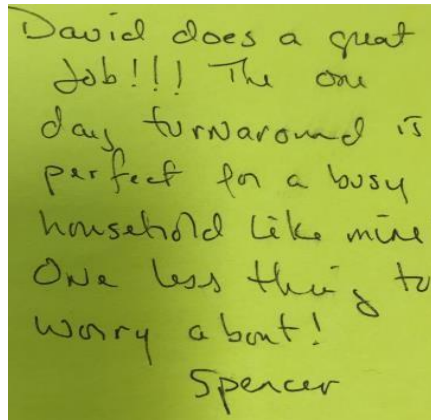 David does a great
Job!!! The one
day turnaround is
perfect for a busy
household like mine
One less thing to
worry about!
Spencer